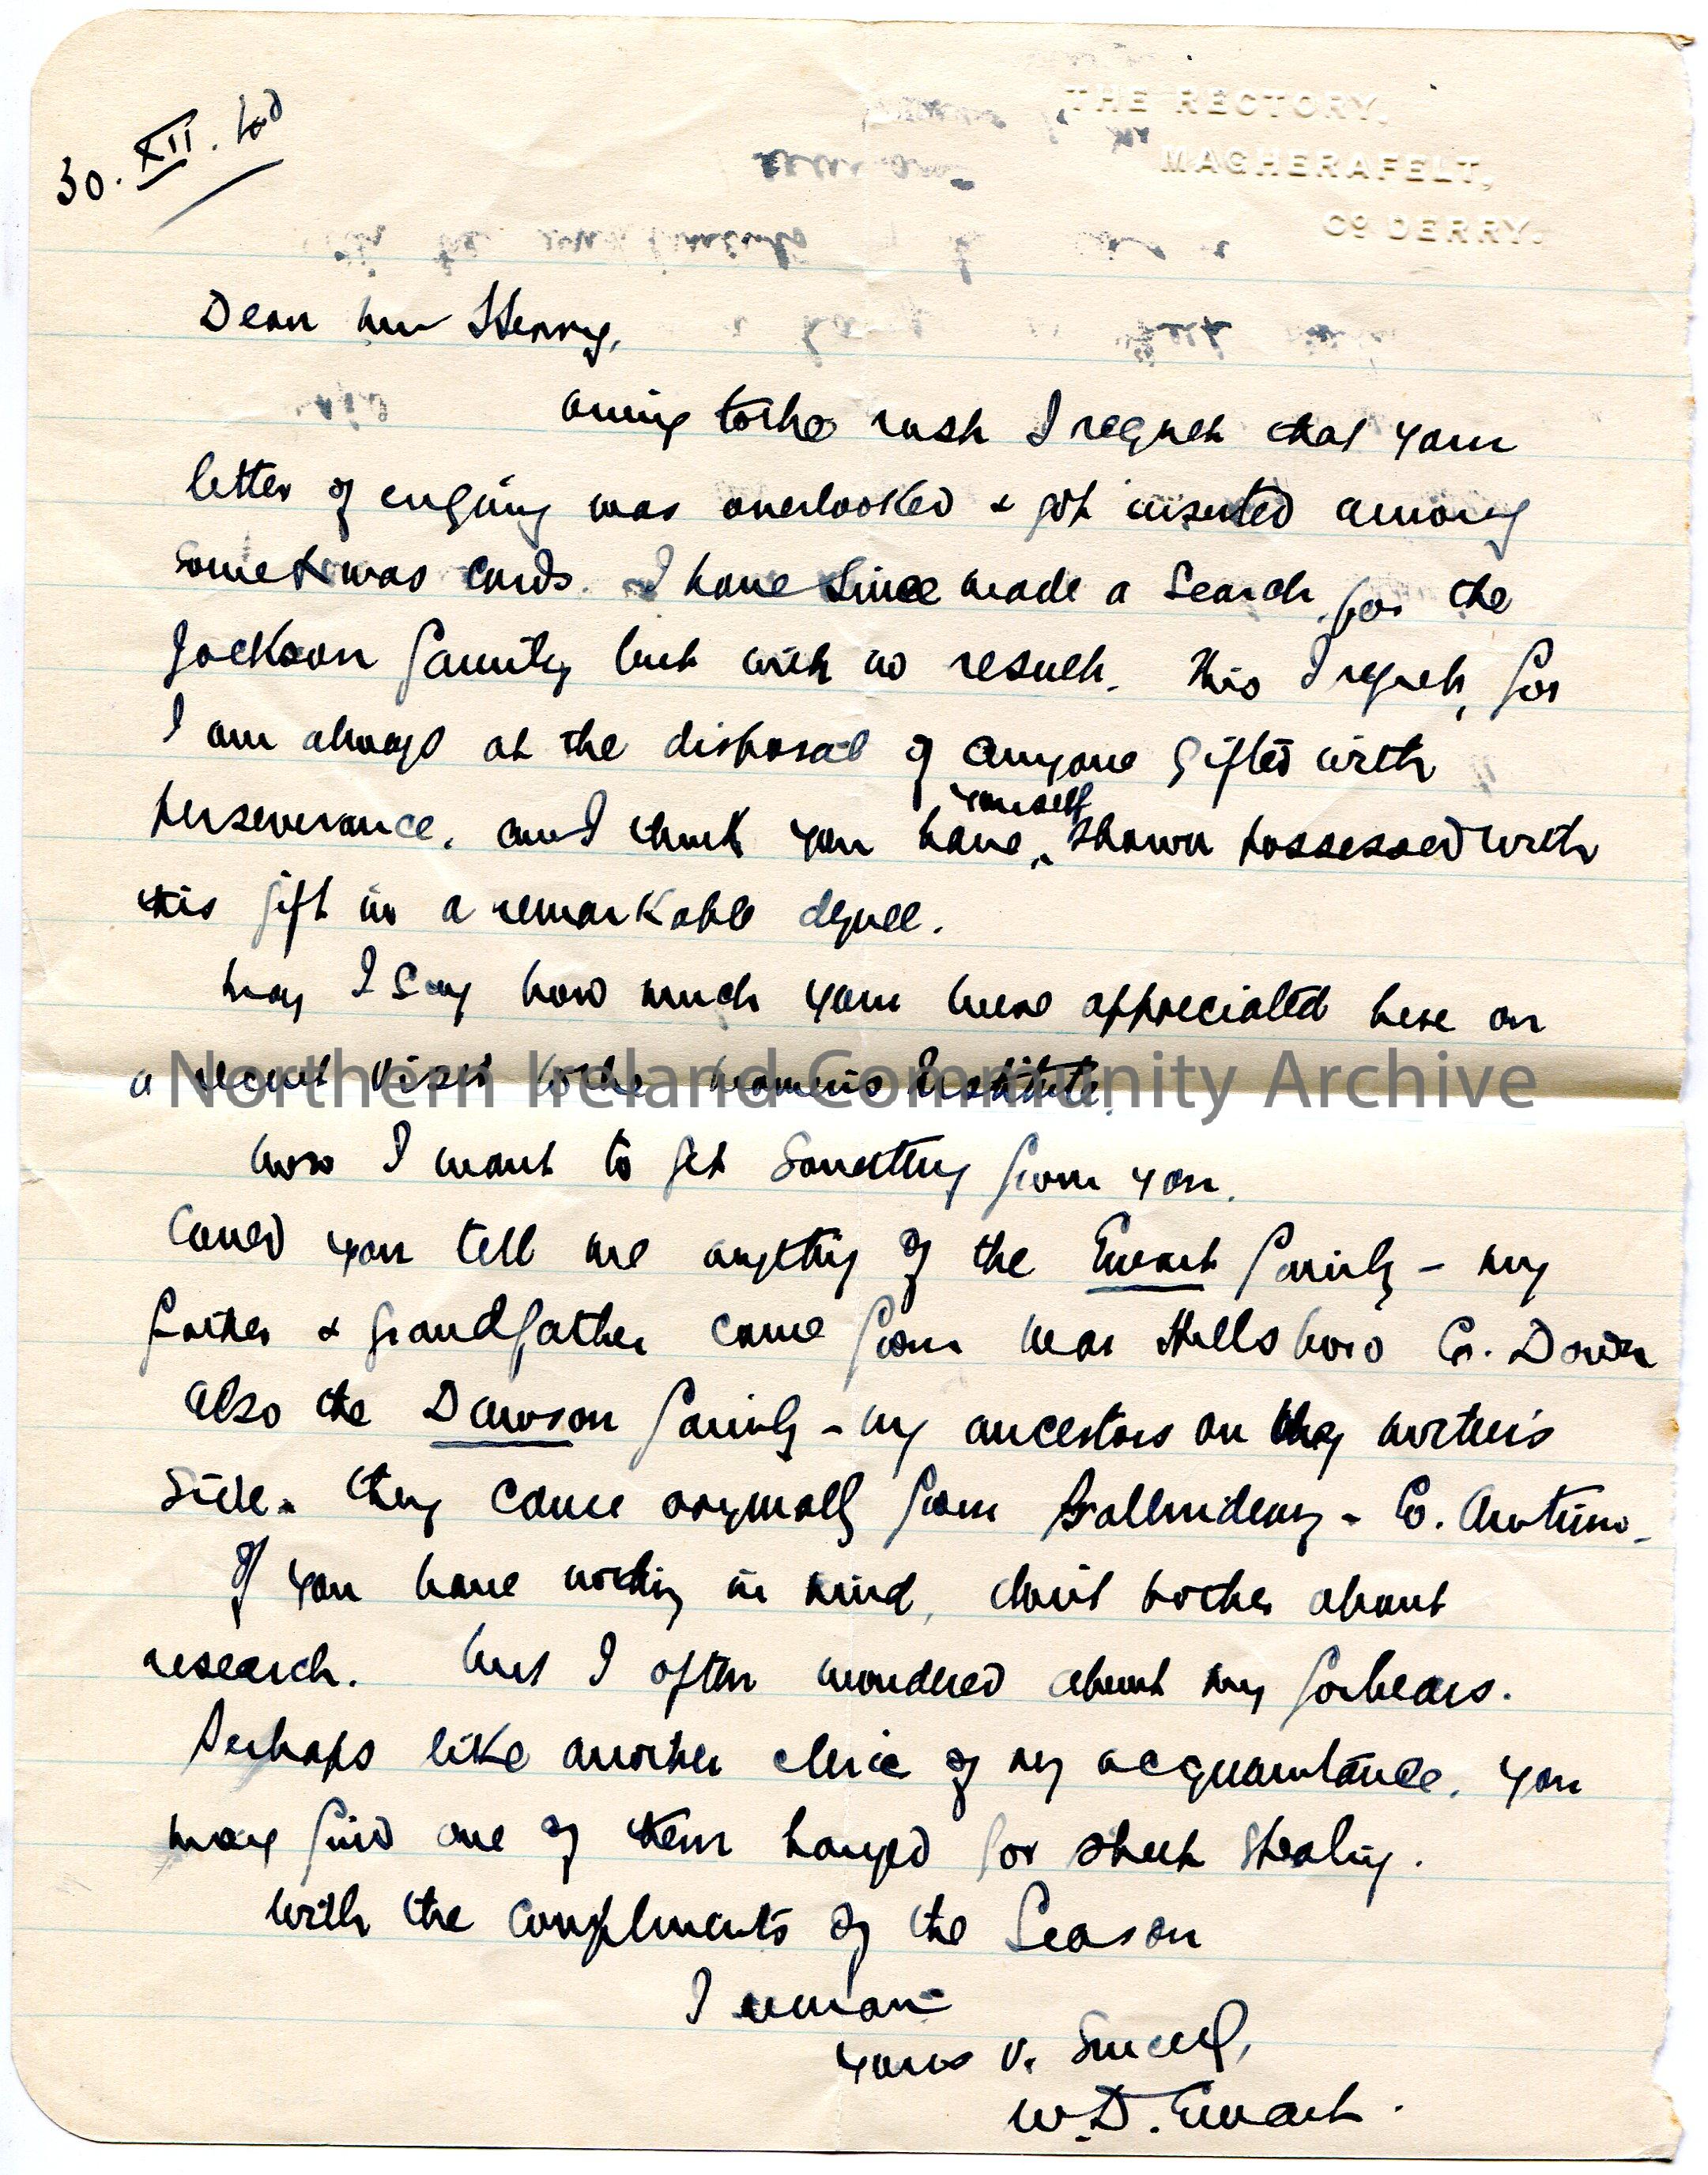 THE RECTORY,
MAGHERAFELT,
Co DERRY.
30. XII.
Dear Mr Henry,
owing to the rush I regret that your
letter of enquiry was overlooked & got inserted among
some Xmas cards. I have since made a search for the
Jackson family but with no result. This I regret, for
I am always at the disposal of anyone gifted with
perseverance, and I think you have yourself shown possessed with
this gift in a remarkable degree.
May I say how much you were appreciated here on
a recent visit to the Women's Institute.
Now I want to get something from you.
Could you tell me anything of the Ewart family - my
father & grandfather came from near Hillsboro Co. Down
also the Dawson family - my ancestors on my mother's
side. They came originally from Ballinderry - Co. Antrim.
If you have nothing in mind, don't bother about
research. But I often wondered about my forbears.
Perhaps like another cleric of my acquaintance, you
may find one of them hanged for sheep stealing.
With the compliments of the Season
I remain
Yours v. Sincerely,
W.D. Ewart.
Northern Ireland Community Archive